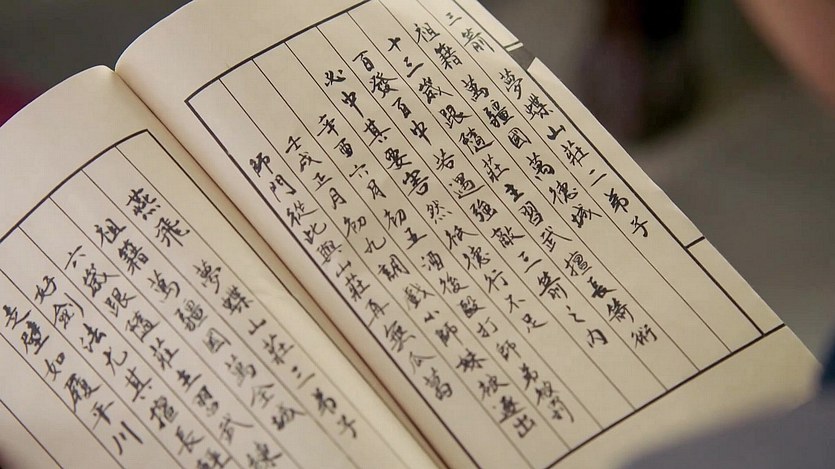 三箭 夢蝶山莊二弟子
祖籍萬疆國萬德城
十三歲跟隨莊主習武 擅長箭術
百發百中 若遇強敵 三箭之內
必中其要害 然德行不足
辛酉六月初五 酒後毆打師弟被罰
壬戌正月初九 調戲小師妹被逐出
師門從此與山莊再無瓜葛
燕飛 夢蝶山莊三弟子
祖籍萬疆國萬全城
六歲跟隨莊主習武 練
好劍法尤其擅長輕
走壁如履平川